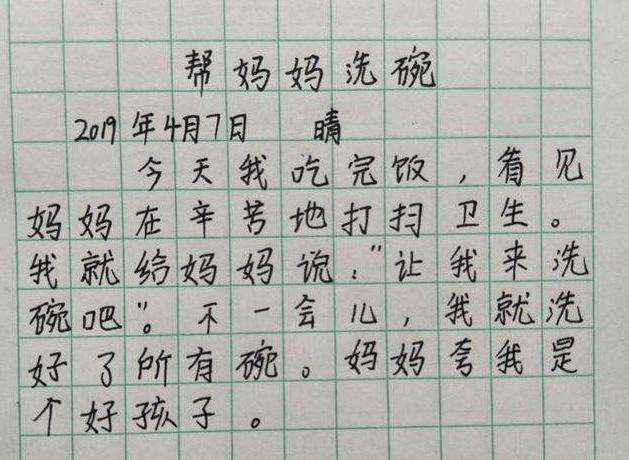 帮妈妈洗碗
2019年4月7日 晴
今天我吃完饭，看见
妈妈在辛苦地打扫卫生。
我就给妈妈说：“让我来洗
碗吧”。不一会儿，我就洗
好了所有碗。妈妈夸我是
个好孩子。